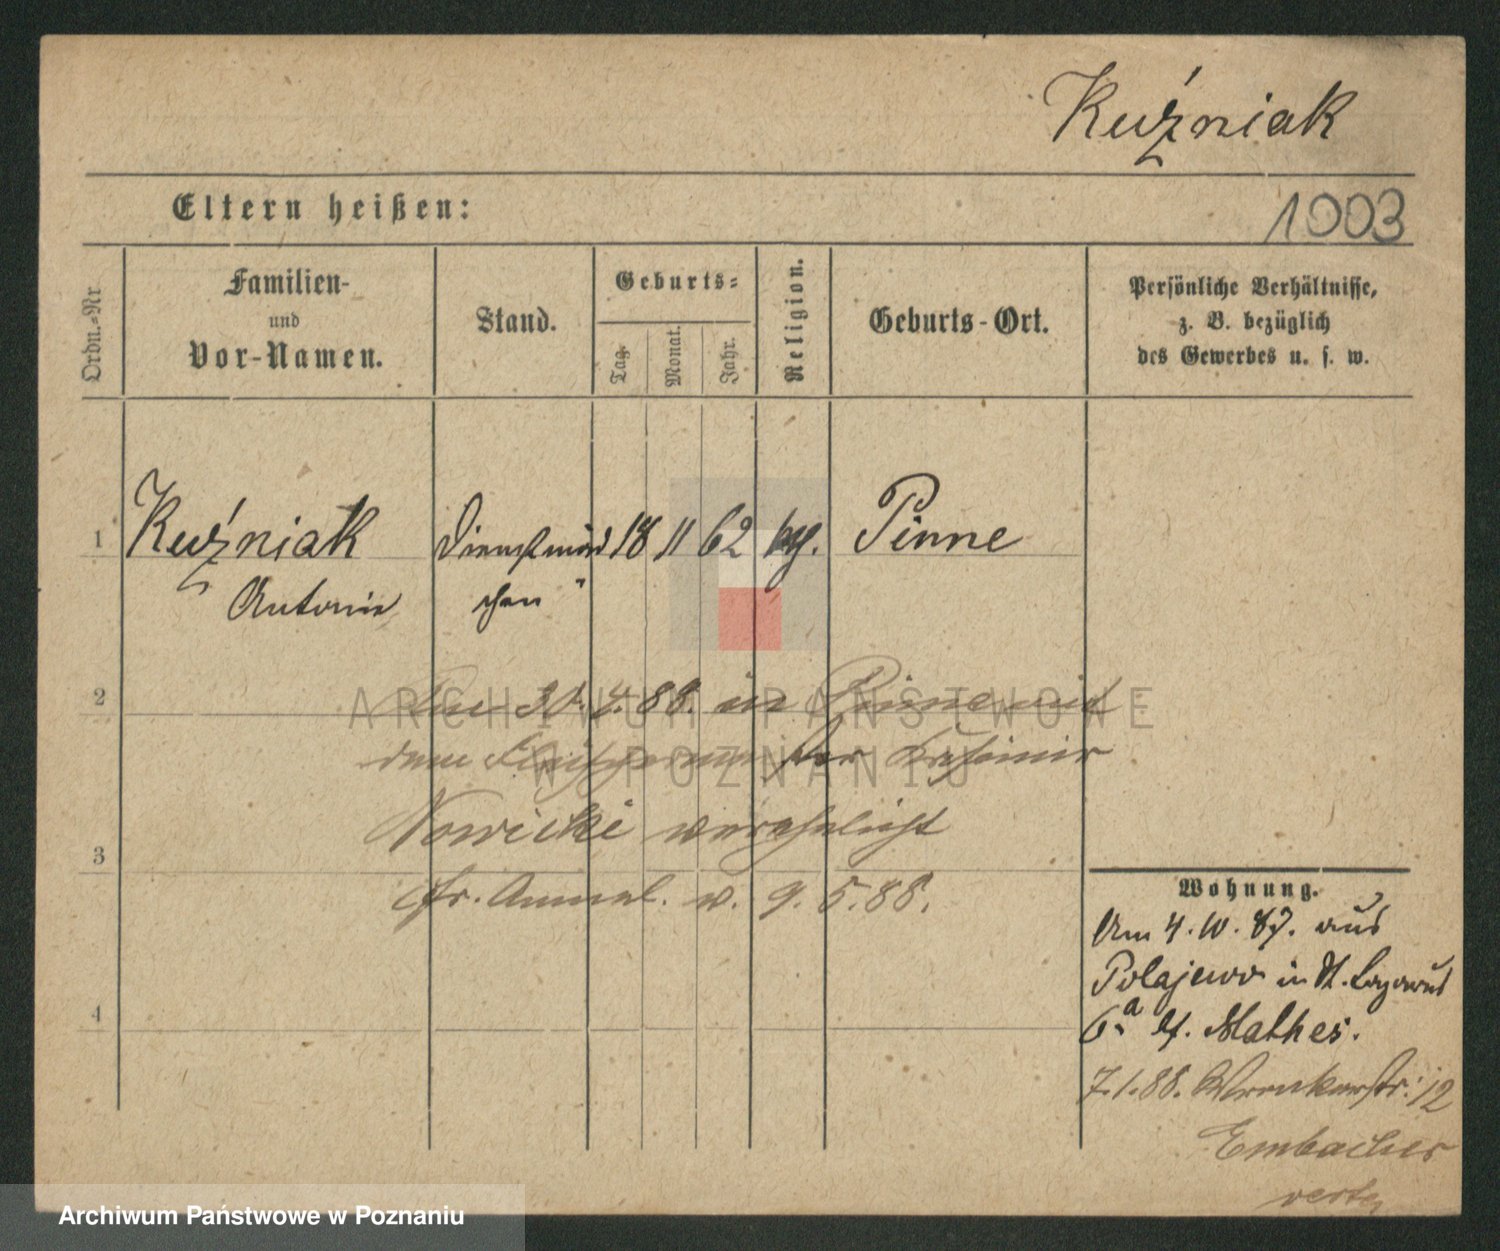 Kuźniak
Eltern heißen:
1003
Ordn.-Nr.
Familien-
und
Vor-Namen.
Stand.
Geburts-
Tag.
Monat.
Jahr.
Religion.
Geburts-Ort.
Persönliche Verhältnisse,
z. B. bezüglich
des Gewerbes u. s. w.
1 Kuźniak Dienstmäd 18 11 62 Pinne
Antonie chen
2
Am 30.4.88. in Pinne mit
dem Kasimir
Nowicki verehelicht
fr. Anmel. v. 9.5.88.
3
4
Wohnung.
Am 4.10.87. aus
Polajewo in St. Lazarus
6a bf. Mathes.
7.1.88. Wronkerstr. 12
Embacher
verte
ARCHIWUM PAŃSTWOWE
W POZNANIU
Archiwum Państwowe w Poznaniu